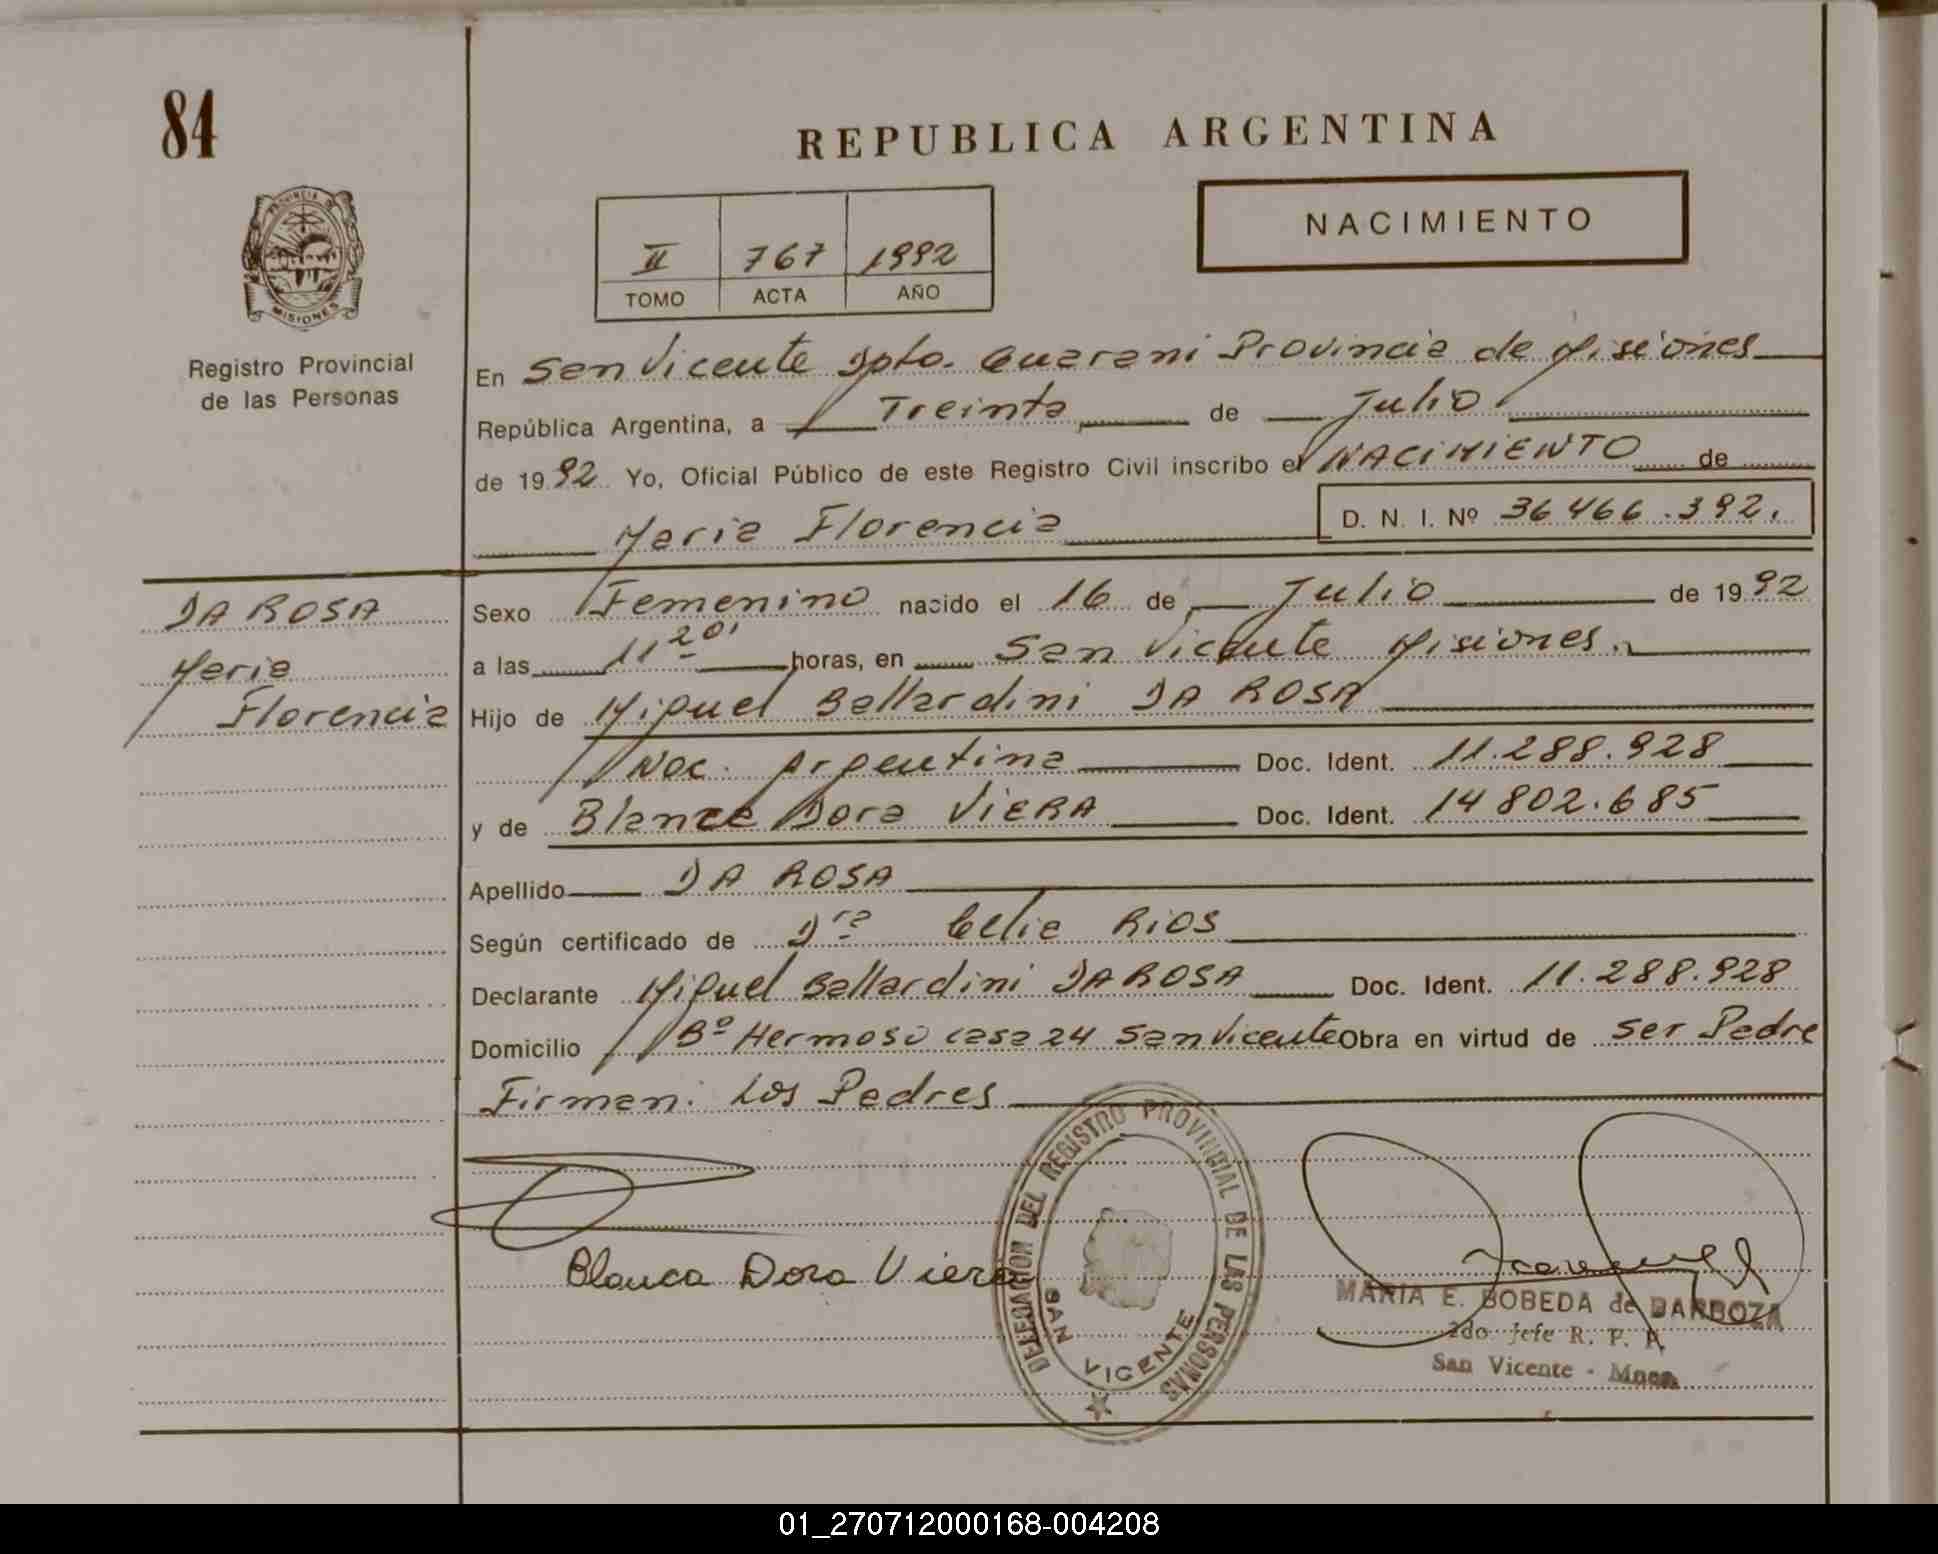 84
REPUBLICA ARGENTINA
PROVINCIA DE
MISIONES
Registro Provincial
de las Personas
II 767 1992
TOMO ACTA AÑO
NACIMIENTO
En San Vicente Dpto. Guarani Provincia de Misiones
República Argentina, a Treinta de Julio
de 1992 Yo, Oficial Público de este Registro Civil inscribo el NACIMIENTO de
Maria Florencia D. N. I. Nº 36 466.392.
DA ROSA
Maria
Florencia
Sexo Femenino nacido el 16 de Julio de 1992
a las 11 20' horas, en San Vicente Misiones.
Hijo de Miguel Ballardini DA ROSA
Nac. Argentina Doc. Ident. 11.288.928
y de Blanca Dora VIERA Doc. Ident. 14 802.685
Apellido DA ROSA
Según certificado de Dra Celia RIOS
Declarante Miguel Ballardini DA ROSA Doc. Ident. 11.288.928
Domicilio Bº Hermoso casa 24 San Vicente Obra en virtud de ser Padre
Firman: Los Padres
Blanca Dora Viera
DELEGACION DEL REGISTRO PROVINCIAL DE LAS PERSONAS
SAN VICENTE
MARIA E. BOBEDA de BARBOZA
2do Jefe R. P. P.
San Vicente - Mnes.
01_270712000168-004208